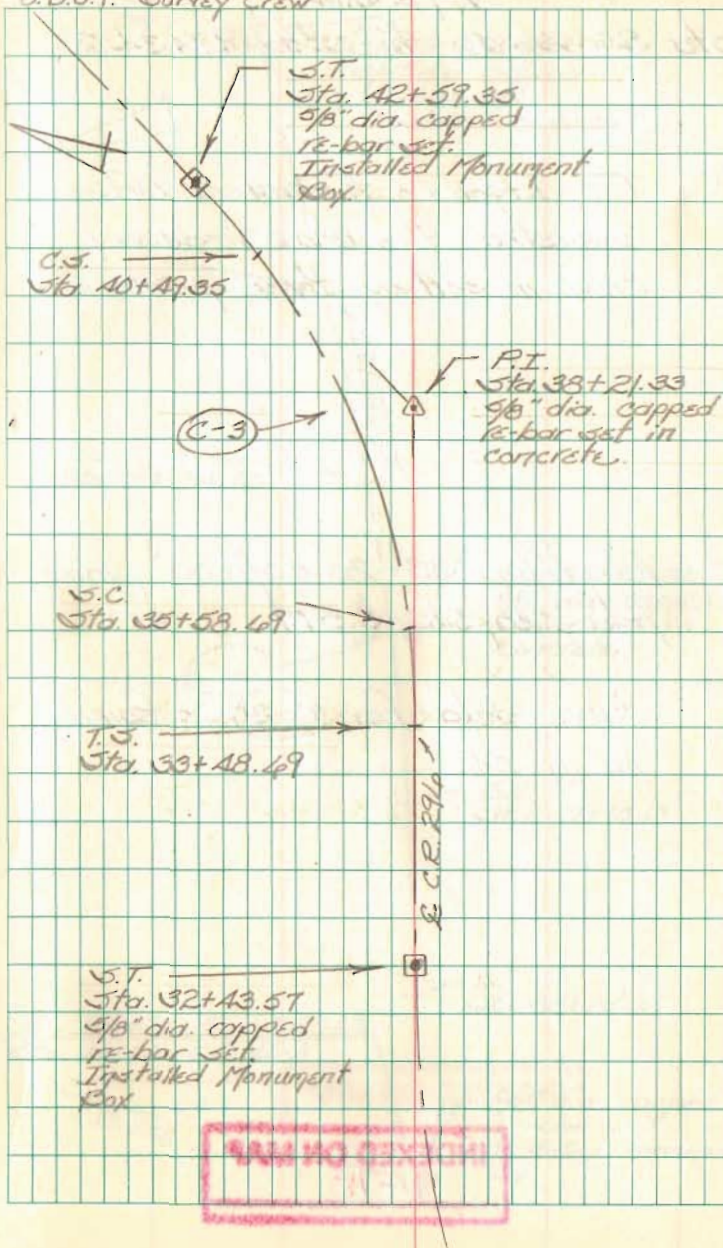 Survey Crew
S.T.
Sta. 42+59.35
5/8" dia. capped
re-bar set.
Installed Monument
Box
C.S.
Sta. 40+49.35
P.I.
Sta. 38+21.33
5/8" dia. capped
re-bar set in
concrete.
C-3
S.C.
Sta. 35+58.69
T.S.
Sta. 33+48.69
℄ C.R. 296
S.T.
Sta. 32+43.57
5/8" dia. capped
re-bar set.
Installed Monument
Box
INDEXED ON MAP